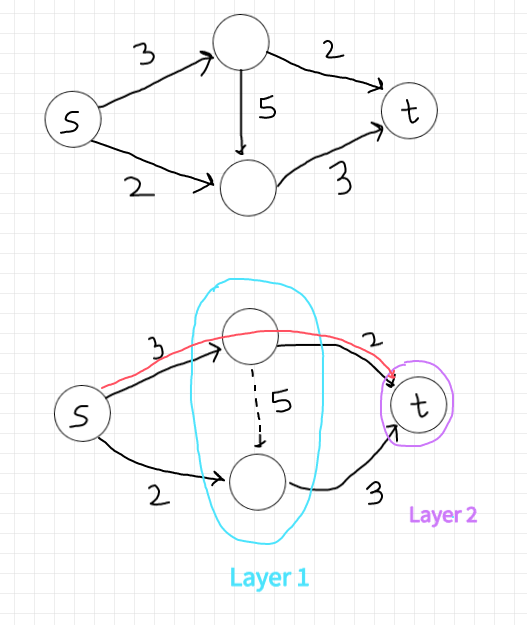 3
2
S
5
t
2
3
3
2
S
5
t
2
3
Layer 2
Layer 1